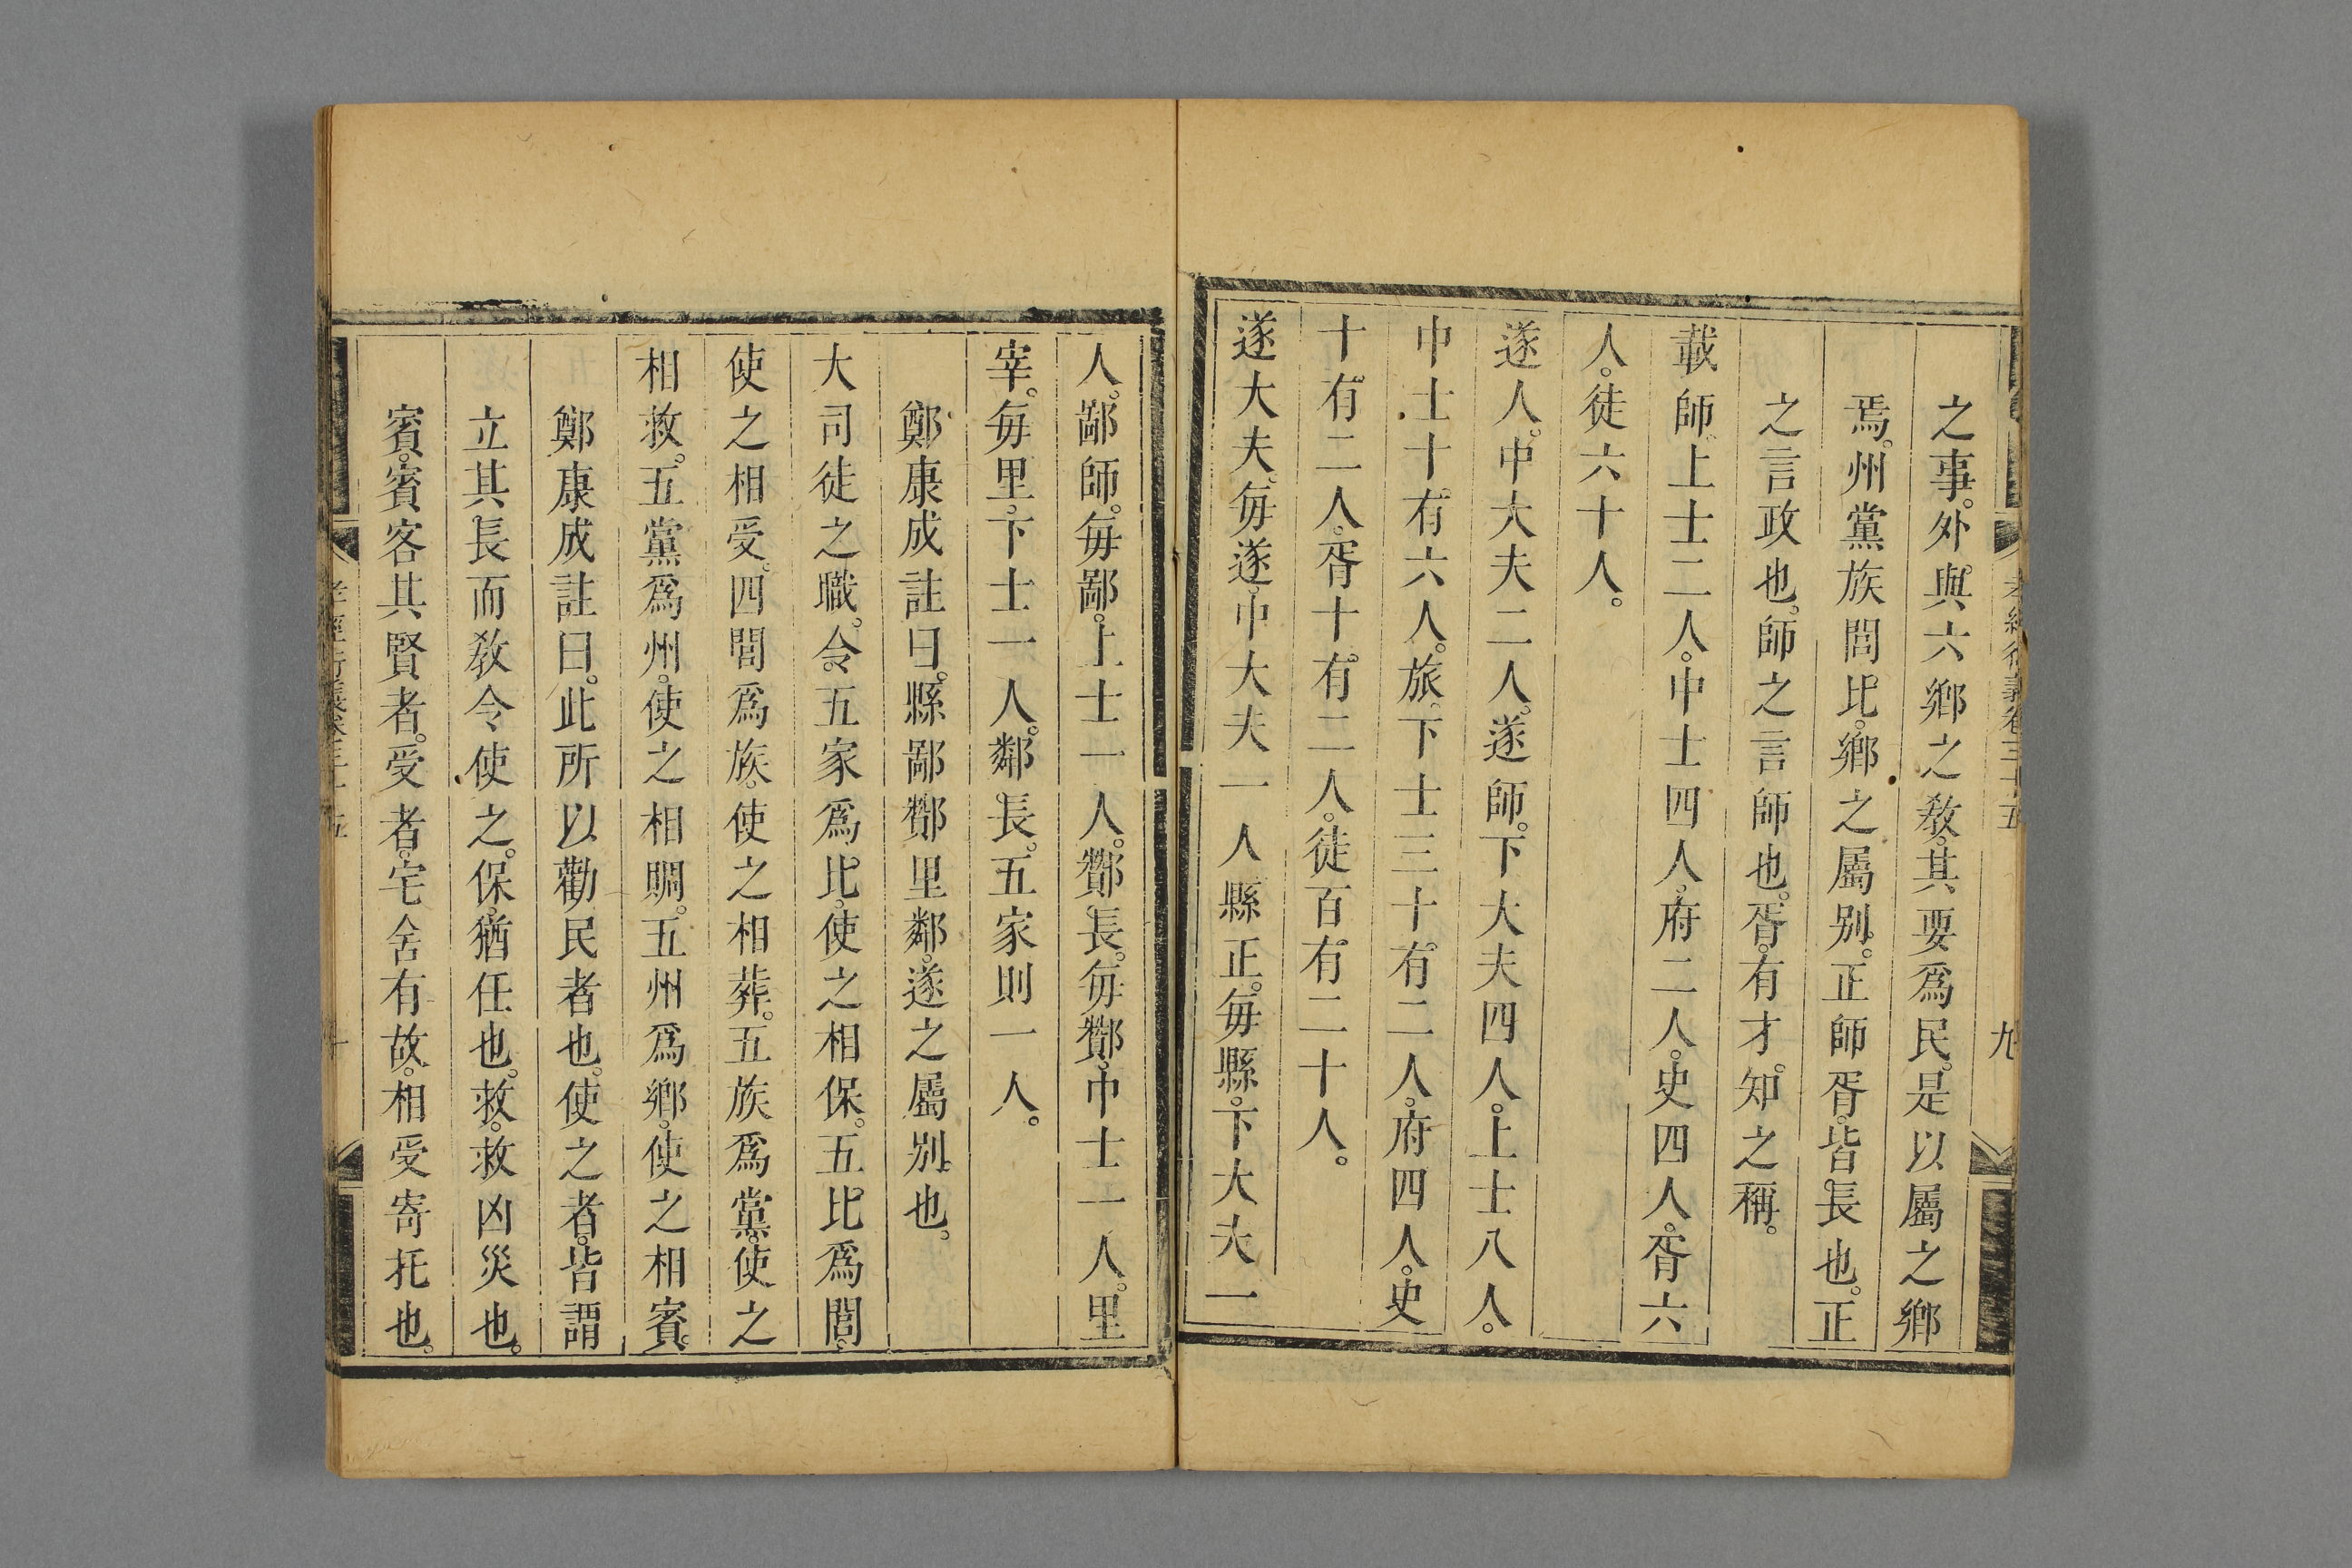 孝經衍義卷三十五
九
之事。外與六鄉之敎。其要爲民。是以屬之鄉
焉。州黨族閭比。鄉之屬别。正師胥。皆長也。正
之言政也。師之言師也。胥。有才。知之稱。
載師。上士二人。中士四人。府二人。史四人。胥六
人。徒六十人。
遂人。中大夫二人。遂師。下大夫四人。上士八人。
中士十有六人。旅。下士三十有二人。府四人。史
十有二人。胥十有二人。徒百有二十人。
遂大夫。每遂。中大夫一人縣正。每縣。下大夫一
人。鄙師。每鄙。上士一人。酇長。每酇。中士一人。里
宰。每里。下士一人。鄰長。五家則一人。
鄭康成註曰。縣鄙酇里鄰。遂之屬别也。
大司徒之職。令五家爲比。使之相保。五比爲閭。
使之相受。四閭爲族。使之相葬。五族爲黨。使之
相救。五黨爲州。使之相賙。五州爲鄉。使之相賓。
鄭康成註曰。此所以勸民者也。使之者。皆謂
立其長而敎令使之。保。猶任也。救。救凶災也。
賓。賓客其賢者。受者。宅舍有故。相受寄托也。